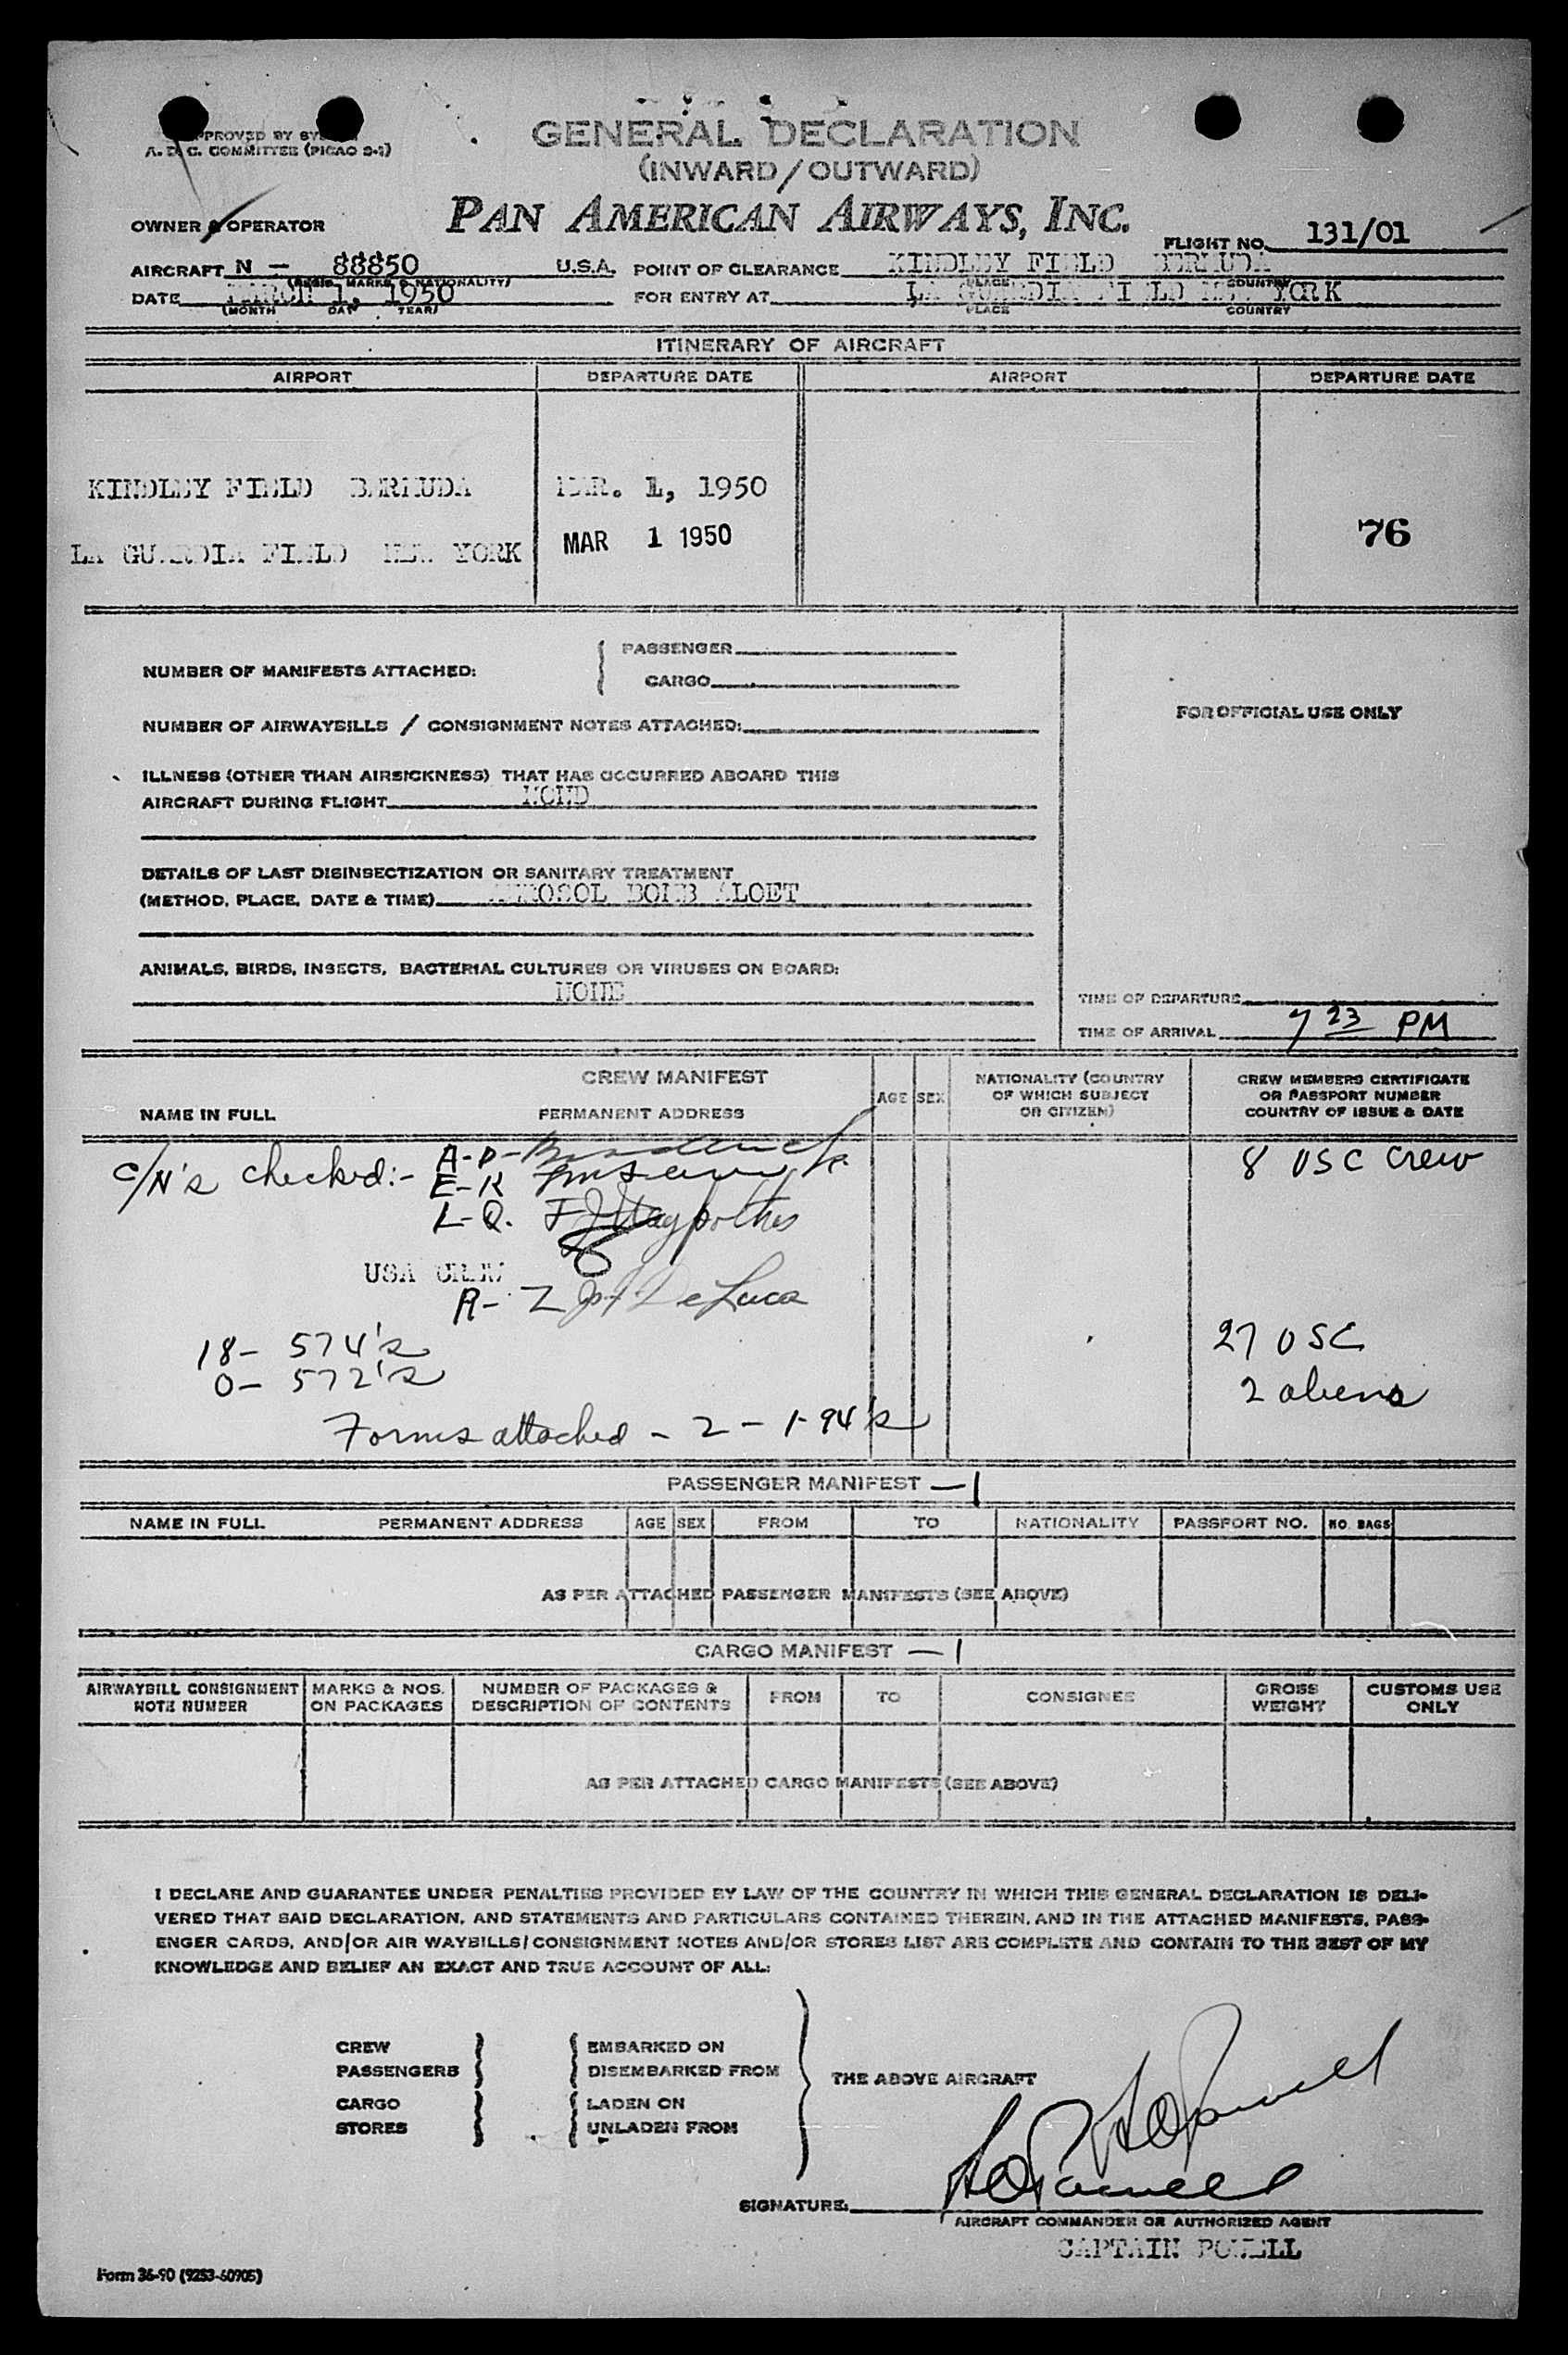 APPROVED BY
A. D. C. COMMITTEE (PICAO 2-1)
GENERAL DECLARATION
(INWARD/OUTWARD)
PAN AMERICAN AIRWAYS, INC.
OWNER & OPERATOR
FLIGHT NO. 131/01
AIRCRAFT N - 88850 U.S.A. POINT OF CLEARANCE KINDLEY FIELD BERMUDA
(REGIS. MARKS & NATIONALITY) PLACE COUNTRY
DATE MARCH 1, 1950 FOR ENTRY AT LA GUARDIA FIELD NEW YORK
(MONTH DAY YEAR) PLACE COUNTRY
ITINERARY OF AIRCRAFT
AIRPORT DEPARTURE DATE AIRPORT DEPARTURE DATE
KINDLEY FIELD BERMUDA MAR. 1, 1950
LA GUARDIA FIELD NEW YORK MAR 1 1950 76
NUMBER OF MANIFESTS ATTACHED: PASSENGER
CARGO
NUMBER OF AIRWAYBILLS / CONSIGNMENT NOTES ATTACHED:
FOR OFFICIAL USE ONLY
ILLNESS (OTHER THAN AIRSICKNESS) THAT HAS OCCURRED ABOARD THIS
AIRCRAFT DURING FLIGHT NONE
DETAILS OF LAST DISINSECTIZATION OR SANITARY TREATMENT
(METHOD, PLACE, DATE & TIME) AEROSOL BOMB ALOET
ANIMALS, BIRDS, INSECTS, BACTERIAL CULTURES OR VIRUSES ON BOARD:
NONE
TIME OF DEPARTURE
TIME OF ARRIVAL 7 23 PM
CREW MANIFEST
NAME IN FULL PERMANENT ADDRESS AGE SEX NATIONALITY (COUNTRY OF WHICH SUBJECT OR CITIZEN) CREW MEMBERS CERTIFICATE OR PASSPORT NUMBER COUNTRY OF ISSUE & DATE
C/N's checked:- A-D-
8 USC Crew
E-K
L-Q.
USA CREW
R-Z DeLuca
18- 574's
27 USC
0- 572's
2 aliens
Forms attached - 2 - I-94's
PASSENGER MANIFEST -1
NAME IN FULL PERMANENT ADDRESS AGE SEX FROM TO NATIONALITY PASSPORT NO. NO. BAGS
AS PER ATTACHED PASSENGER MANIFESTS (SEE ABOVE)
CARGO MANIFEST -1
AIRWAYBILL CONSIGNMENT NOTE NUMBER MARKS & NOS. ON PACKAGES NUMBER OF PACKAGES & DESCRIPTION OF CONTENTS FROM TO CONSIGNEE GROSS WEIGHT CUSTOMS USE ONLY
AS PER ATTACHED CARGO MANIFESTS (SEE ABOVE)
I DECLARE AND GUARANTEE UNDER PENALTIES PROVIDED BY LAW OF THE COUNTRY IN WHICH THIS GENERAL DECLARATION IS DELI-
VERED THAT SAID DECLARATION, AND STATEMENTS AND PARTICULARS CONTAINED THEREIN, AND IN THE ATTACHED MANIFESTS, PASS-
ENGER CARDS, AND/OR AIR WAYBILLS/CONSIGNMENT NOTES AND/OR STORES LIST ARE COMPLETE AND CONTAIN TO THE BEST OF MY
KNOWLEDGE AND BELIEF AN EXACT AND TRUE ACCOUNT OF ALL:
CREW EMBARKED ON
PASSENGERS DISEMBARKED FROM
THE ABOVE AIRCRAFT
CARGO LADEN ON
STORES UNLADEN FROM
SIGNATURE:
AIRCRAFT COMMANDER OR AUTHORIZED AGENT
CAPTAIN POWELL
Form 36-90 (9253-60905)